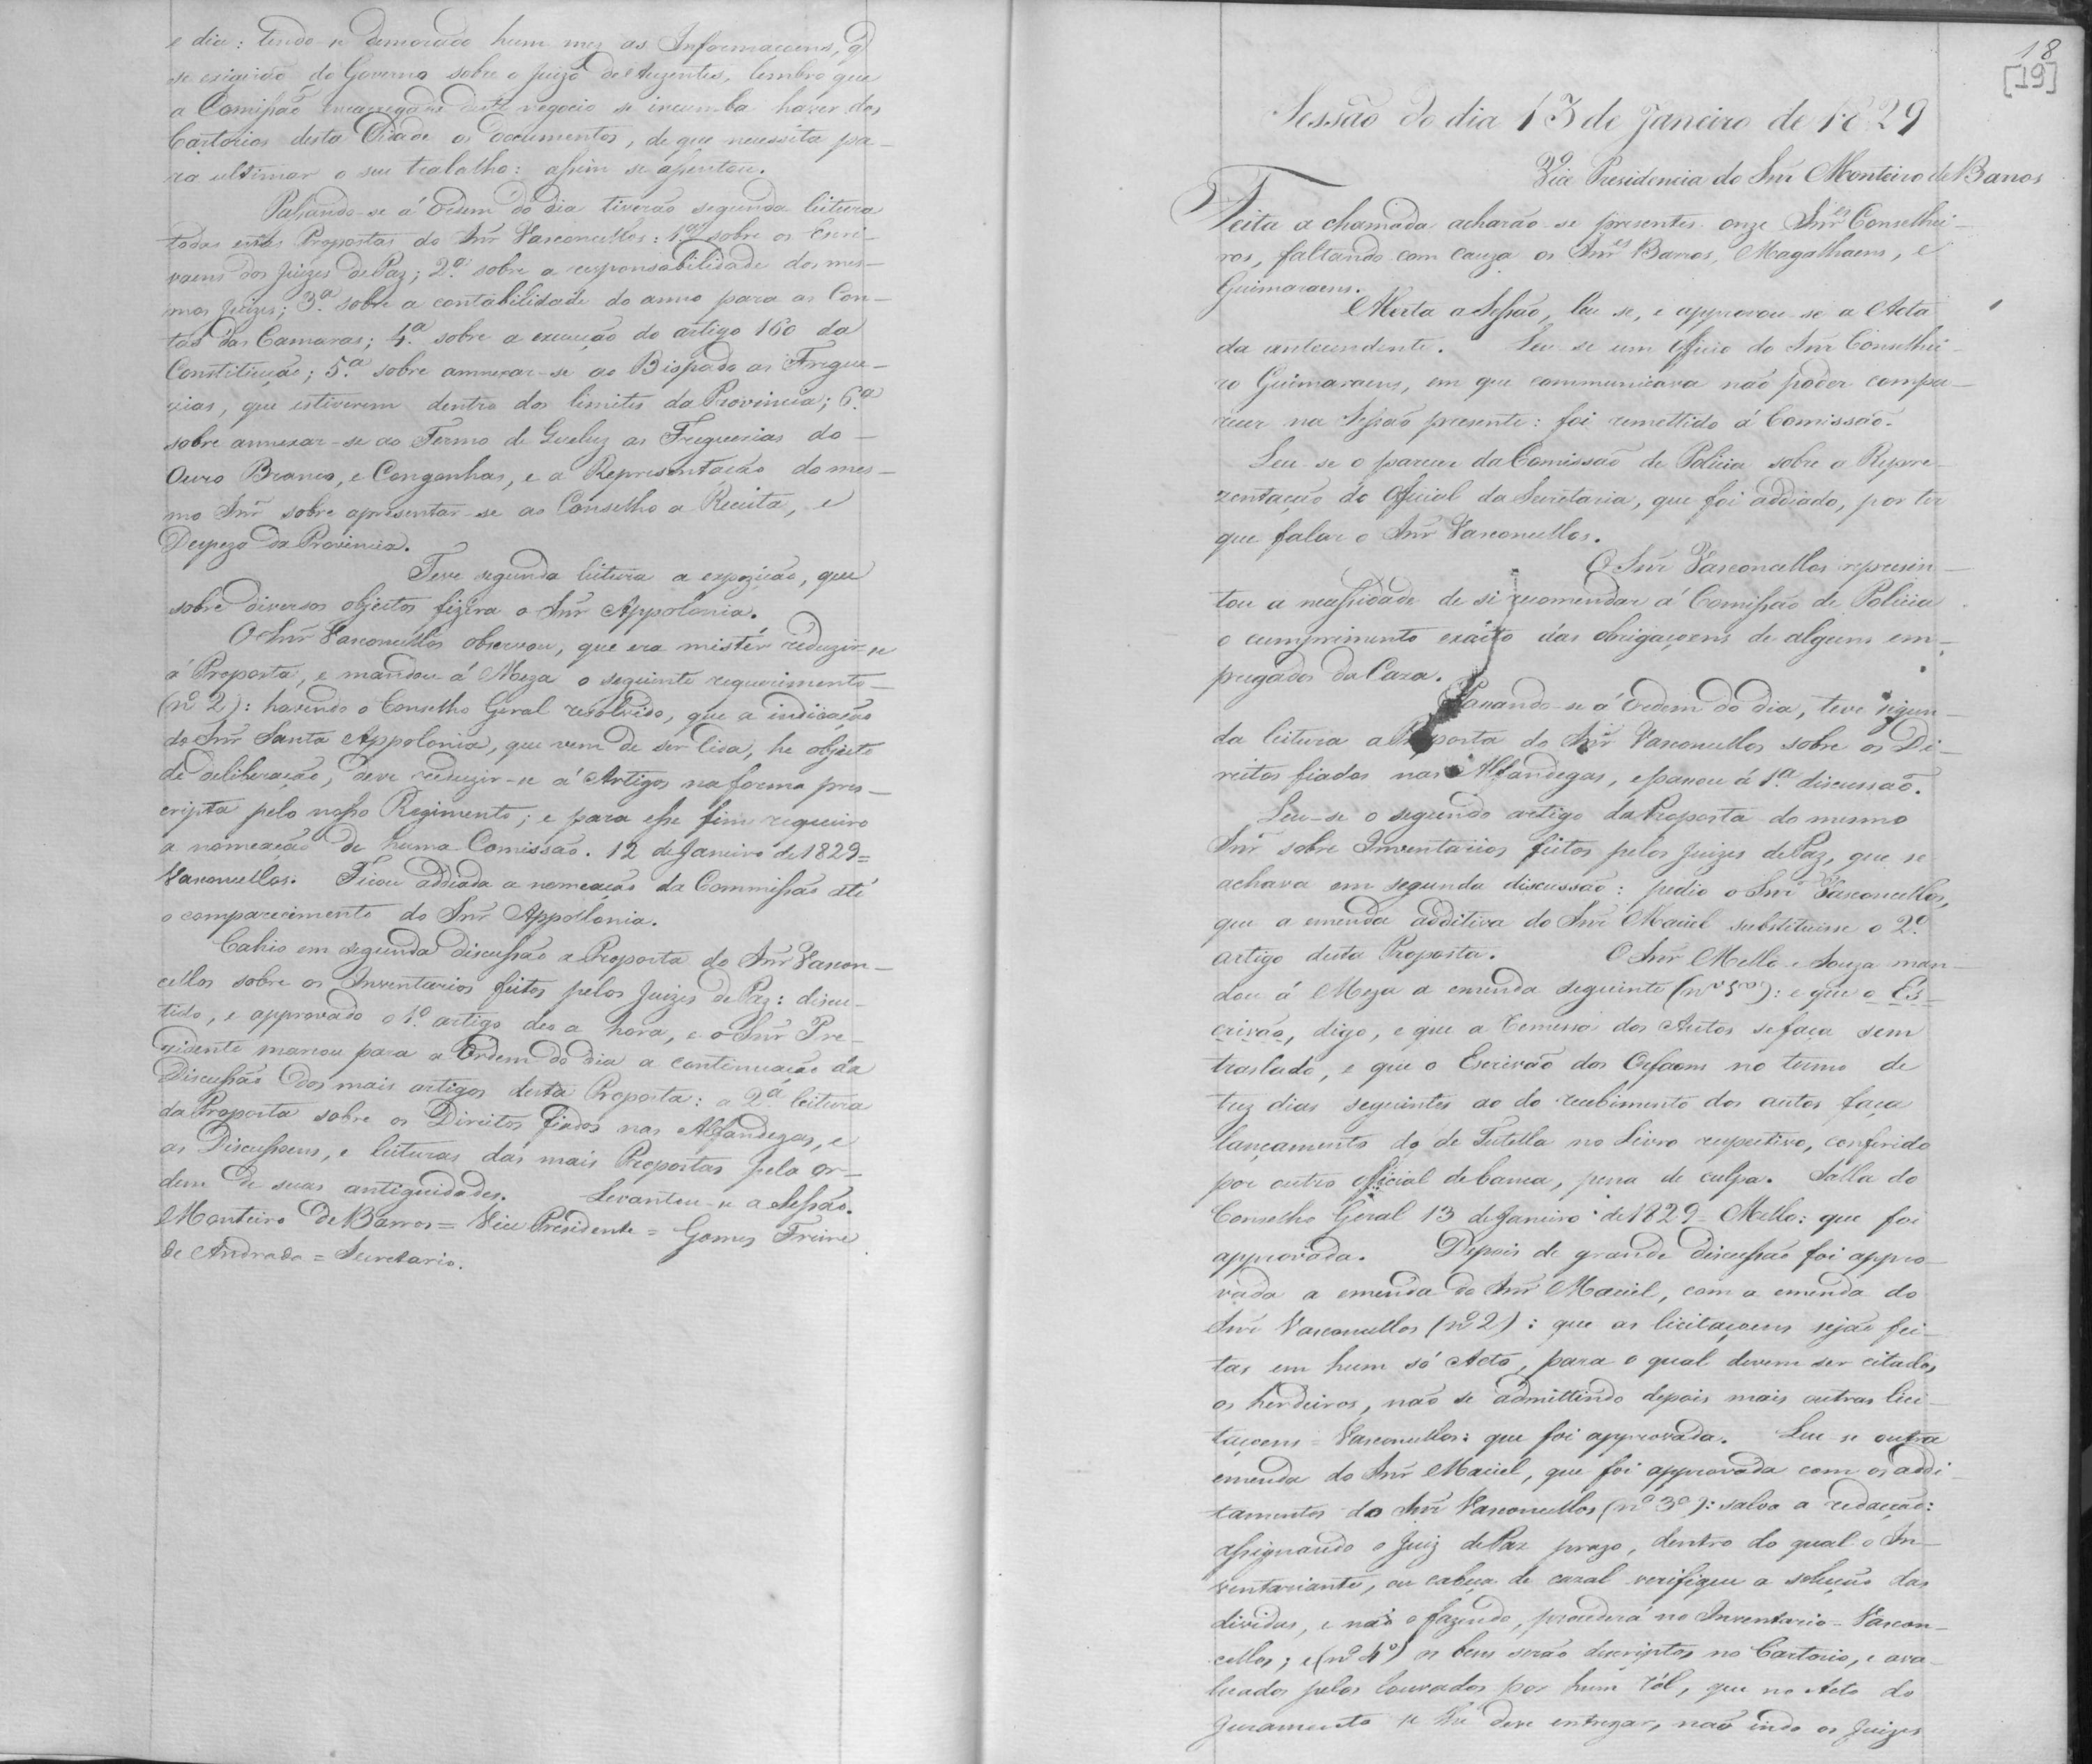 e dia: tendo-se demorado hum mez as Informaçoens, q̃
se exigirão do Governo sobre o Juizo de Auzentes, lembro que
a Comissão encarregada deste negocio se incumba haver dos
Cartorios desta Cidade os documentos, de que necessita pa-
ra ultimar o seu trabalho: assim se assentou.
Passando-se á Ordem do dia tiverão segunda leitura
todas estas Propostas do Snr̃ Vasconcellos: 1ª sobre os Escri-
vaens dos Juizes de Paz; 2ª sobre a responsabilidade dos mes-
mos Juizes; 3ª sobre a contabilidade do anno para as Con-
tas das Camaras; 4ª sobre a execução do artigo 160 da
Constituição; 5ª sobre annexar-se ao Bispado as Fregue-
zias, que estiverem dentro dos limites da Provincia; 6ª
sobre annexar-se ao Termo de Queluz as Freguezias do
Ouro Branco, e Congonhas, e a Representação do mes-
mo Snr̃ sobre apresentar-se ao Conselho a Receita, e
Despeza da Provincia.
Teve segunda leitura a expozição, que
sobre diversos objectos fizera o Snr̃ Appolonia.
O Snr̃ Vasconcellos observou, que era mistér reduzir-se
á Proposta, e mandou á Meza o seguinte requerimento
(nº 2): havendo o Conselho Geral resolvido, que a indicação
do Snr̃ Santa Appolonia, que vem de ser lida, he objecto
de deliberação, deve reduzir-se a Artigos na forma pres-
cripta pelo nosso Regimento; e para esse fim requeiro
a nomeação de huma Comissão. 12 de Janeiro de 1829=
Vasconcellos. Ficou addiada a nomeação da Commissão até
o comparecimento do Snr̃ Appollonia.
Cahio em segunda discussão a Proposta do Snr̃ Vascon-
cellos sobre os Inventarios feitos pelos Juizes de Paz: discu-
tido, e approvado o 1º artigo deo a hora, e o Snr̃ Pre-
zidente marcou para a Ordem do dia a continuação da
Discussão dos mais artigos desta Proposta: a 2ª leitura
da Proposta sobre os Direitos fiados nas Alfandegas, e
as Discussoens, e leituras das mais Propostas pela or-
dem de suas antiguidades. Levantou-se a Sessão.
Monteiro de Barros = Vice Presidente = Gomes Freire
de Andrada = Secretario.
18
[19]
Sessão do dia 13 de Janeiro de 1829
Vice Presidencia do Snr̃ Monteiro de Barros
Feita a chamada, acharão-se presentes onze Snr̃es Conselhei-
ros, faltando com cauza os Snr̃es Barros, Magalhaens, e
Guimaraens.
Aberta a Sessão, leu-se, e approvou-se a Acta
da antecendente. Leu-se um Officio do Snr̃ Conselhei-
ro Guimaraens, em que communicava não poder compa-
recer na Sessão presente: foi remettido á Comissão.
Leu-se o parecer da Comissão de Policia sobre a Repre-
zentação do Official da Secretaria, que foi addiado, por ter
que falar o Snr̃ Vasconcellos.
O Snr̃ Vasconcellos represen-
tou a necessidade de se recomendar á Comissão de Policia
o cumprimento exácto das obrigaçoens de alguns em-
pregados da Caza.
Passando-se á Ordem do dia, teve segun-
da leitura a Proposta do Snr̃ Vasconcellos sobre os Di-
reitos fiados nas Alfandegas, e passou á 1ª discussão.
Leu-se o segundo artigo da Proposta do mesmo
Snr̃ sobre Inventarios feitos pelos Juizes de Paz, que se
achava em segunda discussão: pedio o Snr̃ Vasconcellos,
que a emenda additiva do Snr̃ Maciel substituisse o 2º
artigo desta Proposta. O Snr̃ Mello e Souza man-
dou á Meza a emenda seguinte (nº 1º): e que o Es-
crivão, digo, e que a remessa dos Autos se faça sem
traslado, e que o Escrivão dos Orfaons no termo de
trez dias seguintes ao do recebimento dos autos faça
lançamento do de Tutella no Livro respectivo, conferido
por outro official de banca, pena de culpa. Salla do
Conselho Geral 13 de Janeiro de 1829= Mello: que foi
approvada. Depois de grande discussão foi appro-
vada a emenda do Snr̃ Maciel, com a emenda do
Snr̃ Vasconcellos (nº 2): que as licitaçoens sejão fei-
tas em hum só Acto, para o qual devem ser citados
os herdeiros, não se admittindo depois mais outras lici-
taçoens = Vasconcellos: que foi approvada. Leu-se outra
emenda do Snr̃ Maciel, que foi approvada com os addi-
tamentos do Snr̃ Vasconcellos (nº 3º): salva a redacção:
assignando o Juiz de Paz prazo, dentro do qual o In-
ventariante, ou cabeça de cazal verifique a solução das
dividas, e não o fazendo, procederá no Inventario = Vascon-
cellos; e (nº 4º) os bens serão descriptos no Cartorio, e ava-
liados pelos Louvados por hum ról, que no Acto do
Juramento se lhe deve entregar, não indo os Juizes